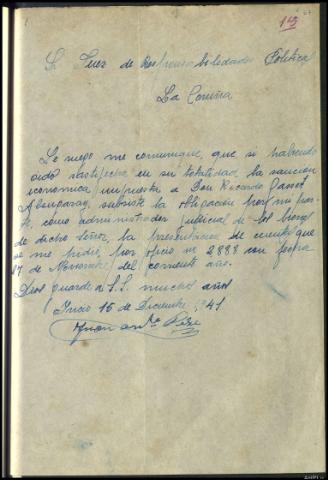 113
Sr Juez de Responsabilidades Politica
La Coruña
Le ruego me comunique, que si habiendo
sido satisfecha en su totalidad la sancion
economica, impuesta a Don Ricardo Gasset
Alzugaray, subsiste la obligación por mi par-
te, como administrador judicial de los bienes
de dicho señor, la presentacion de cuentas que
se me pide, por oficio nº 2888 con fecha
17 de Noviembre del corriente año.
Dios guarde a S.S. muchos años
Incio 15 de Diciembre 1941
Juan Antº Pérez